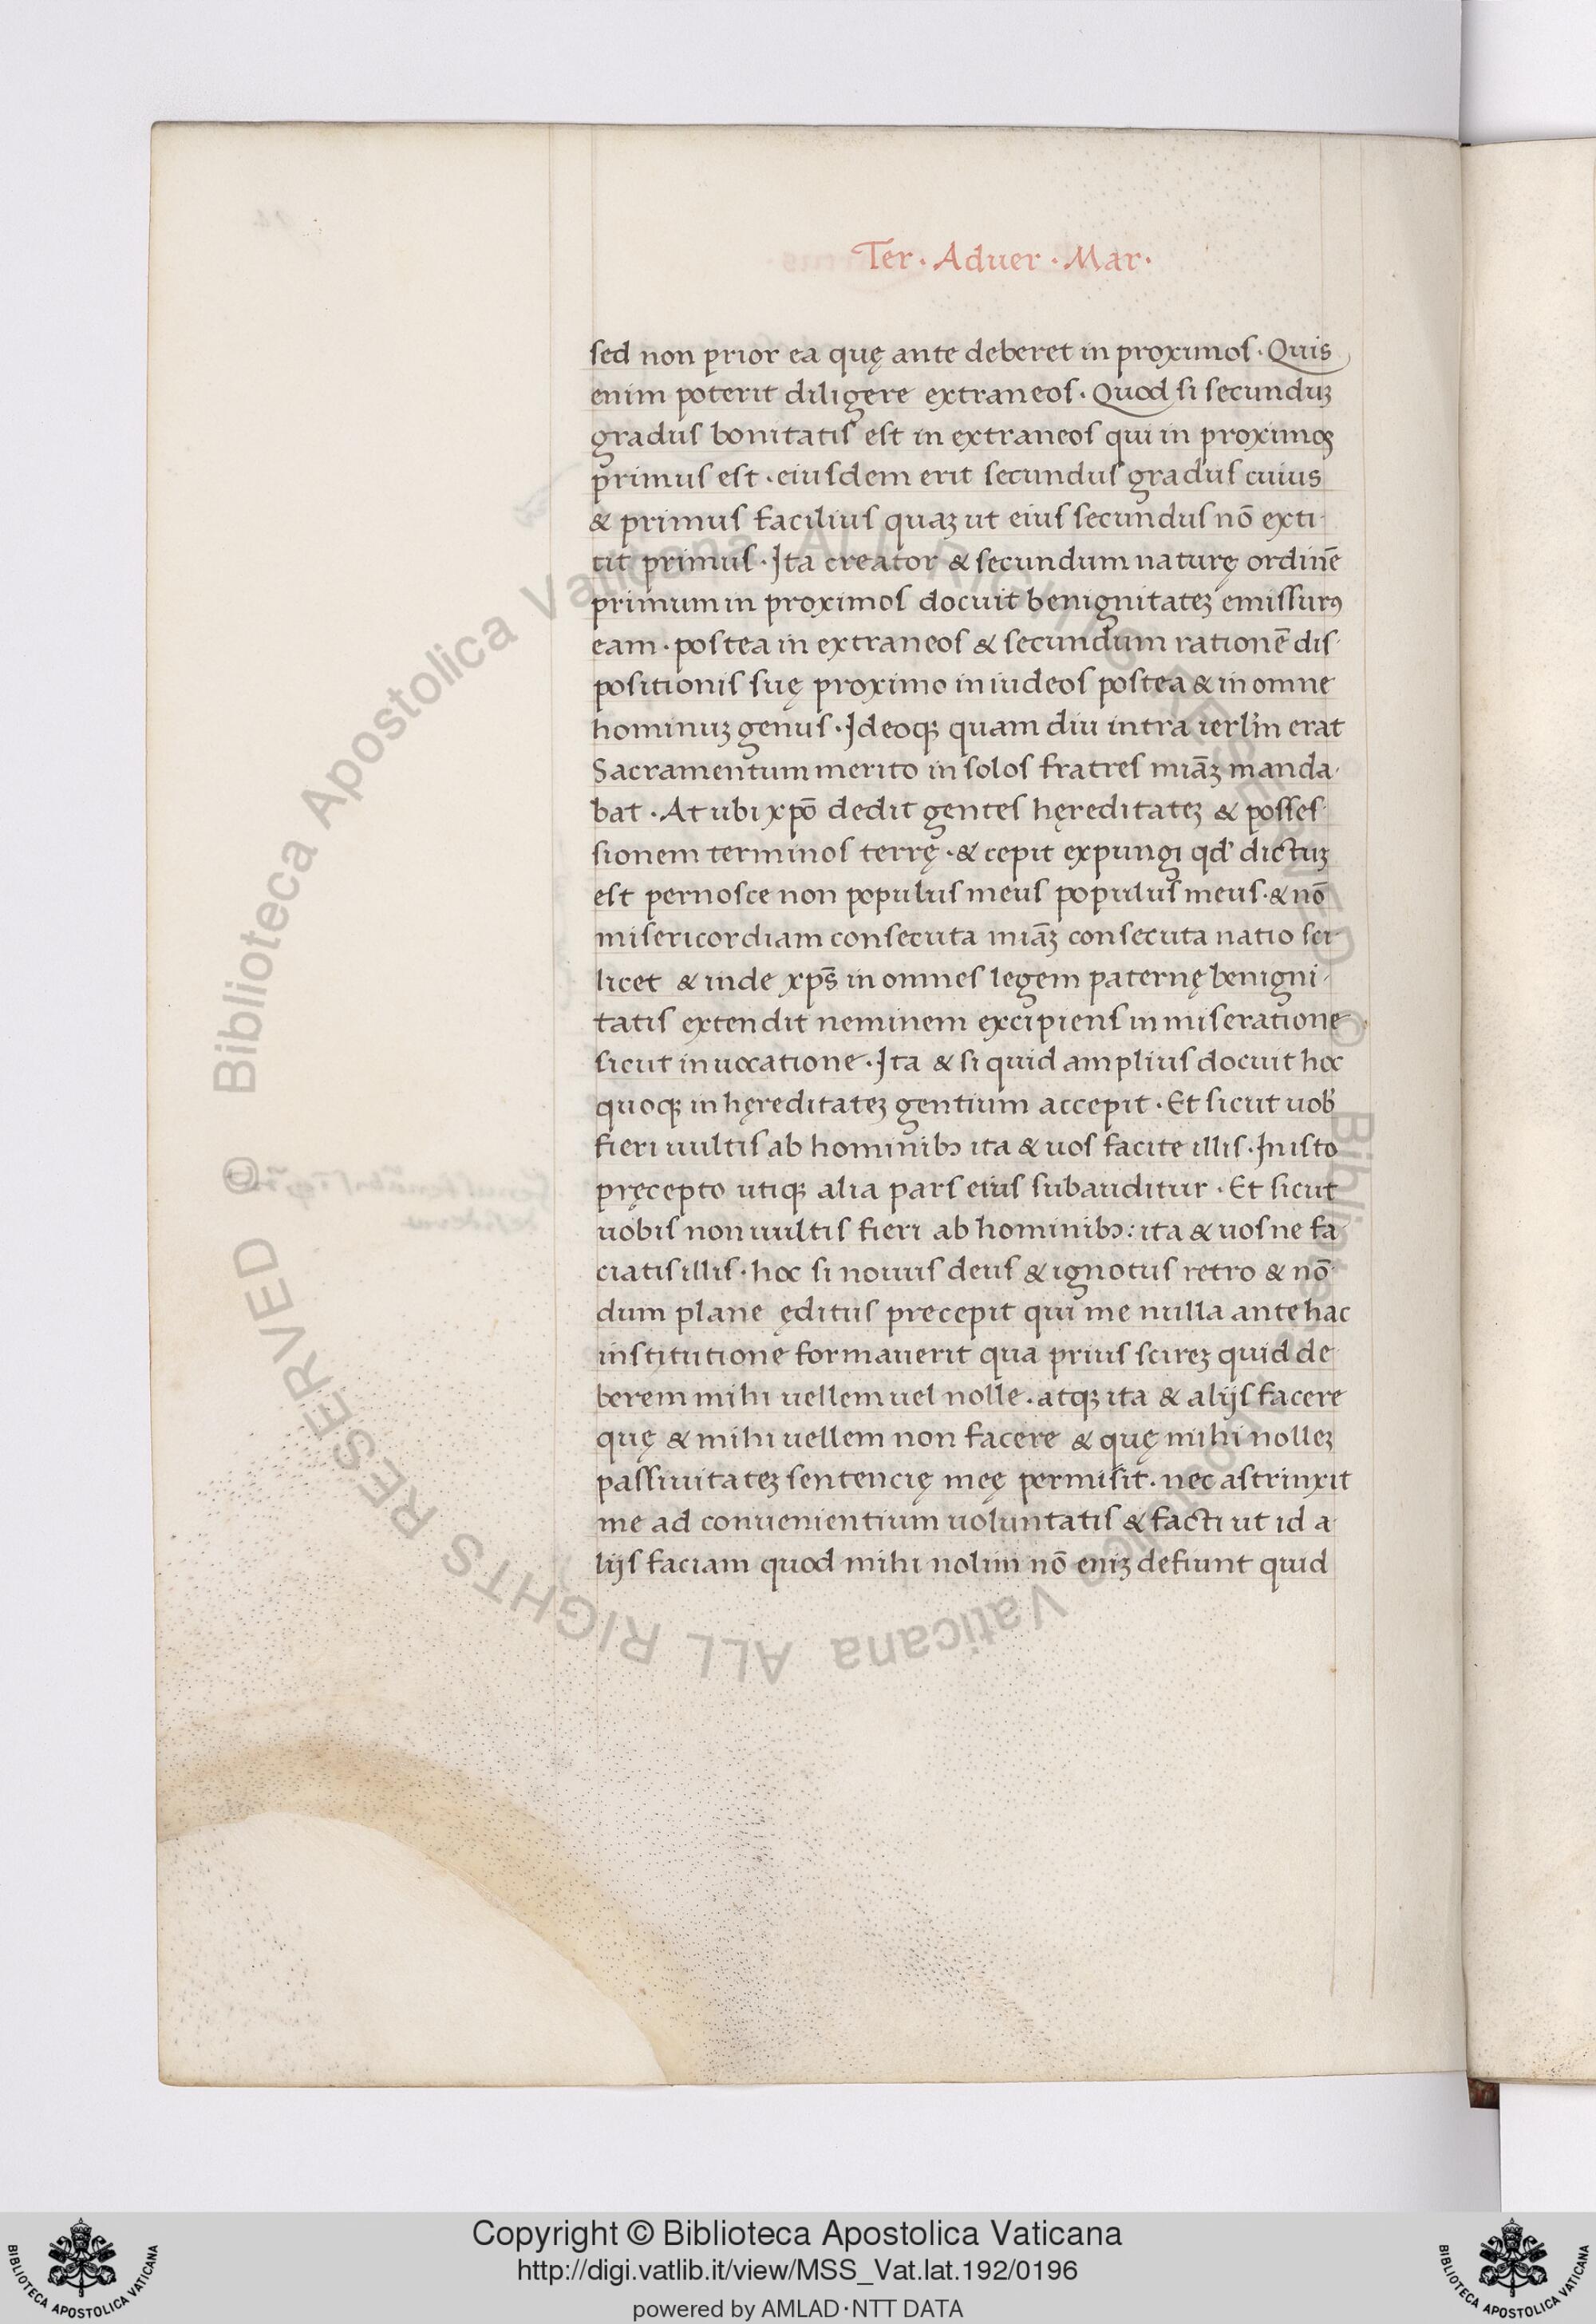 Ter · Aduer · Mar ·
sed non prior ea quę ante deberet in proximos · Quis
enim poterit diligere extraneos · Quod si secunduꝫ
gradus bonitatis est in extraneos qui in proximoꝫ
primus est · eiusdem erit secundus gradus cuius
& primus facilius quaꝫ ut eius secundus nō exti-
tit primus · Ita creator & secundum naturę ordinē
primum in proximos docuit benignitateꝫ emissurꝰ
eam · postea in extraneos & secundum rationē dis-
positionis suę proximo in iudeos postea & in omne
hominuꝫ genus · Ideoqꝫ quam diu intra ierlm̄ erat
Sacramentum merito in solos fratres miāꝫ manda-
bat · At ubi xpō dedit gentes hęreditateꝫ & posses-
sionem terminos terrę · & cepit expungi qd' dictuꝫ
est pernosce non populus meus populus meus · & nō
misericordiam consecuta miāꝫ consecuta natio sci-
licet & inde xps̄ in omnes legem paternę benigni-
tatis extendit neminem excipiens in miseratione
sicut in uocatione · Ita & si quid amplius docuit hoc
quoqꝫ in hęreditateꝫ gentium accepit · Et sicut uob'
fieri uultis ab hominibꝫ ita & uos facite illis · In isto
pręcepto utiqꝫ alia pars eius subauditur · Et sicut
uobis non uultis fieri ab hominibꝫ : ita & uos ne fa-
ciatis illis · hoc si nouus deus & ignotus retro & nō-
dum plane ęditus precepit qui me nulla ante hac
institutione formauerit qua prius scireꝫ quid de-
berem mihi uellem uel nolle · atqꝫ ita & alijs facere
quę & mihi uellem non facere & quę mihi nolleꝫ
passiuitateꝫ sentencię meę permisit · nec astrinxit
me ad conuenientium uoluntatis & facti ut id a-
lijs faciam quod mihi nolim nō eniꝫ defiunt quid
© Biblioteca Apostolica Vaticana ALL RIGHTS RESERVED © Biblioteca Apostolica Vaticana ALL RIGHTS RESERVED
Copyright © Biblioteca Apostolica Vaticana
http://digi.vatlib.it/view/MSS_Vat.lat.192/0196
powered by AMLAD·NTT DATA
BIBLIOTECA APOSTOLICA VATICANA
BIBLIOTECA APOSTOLICA VATICANA